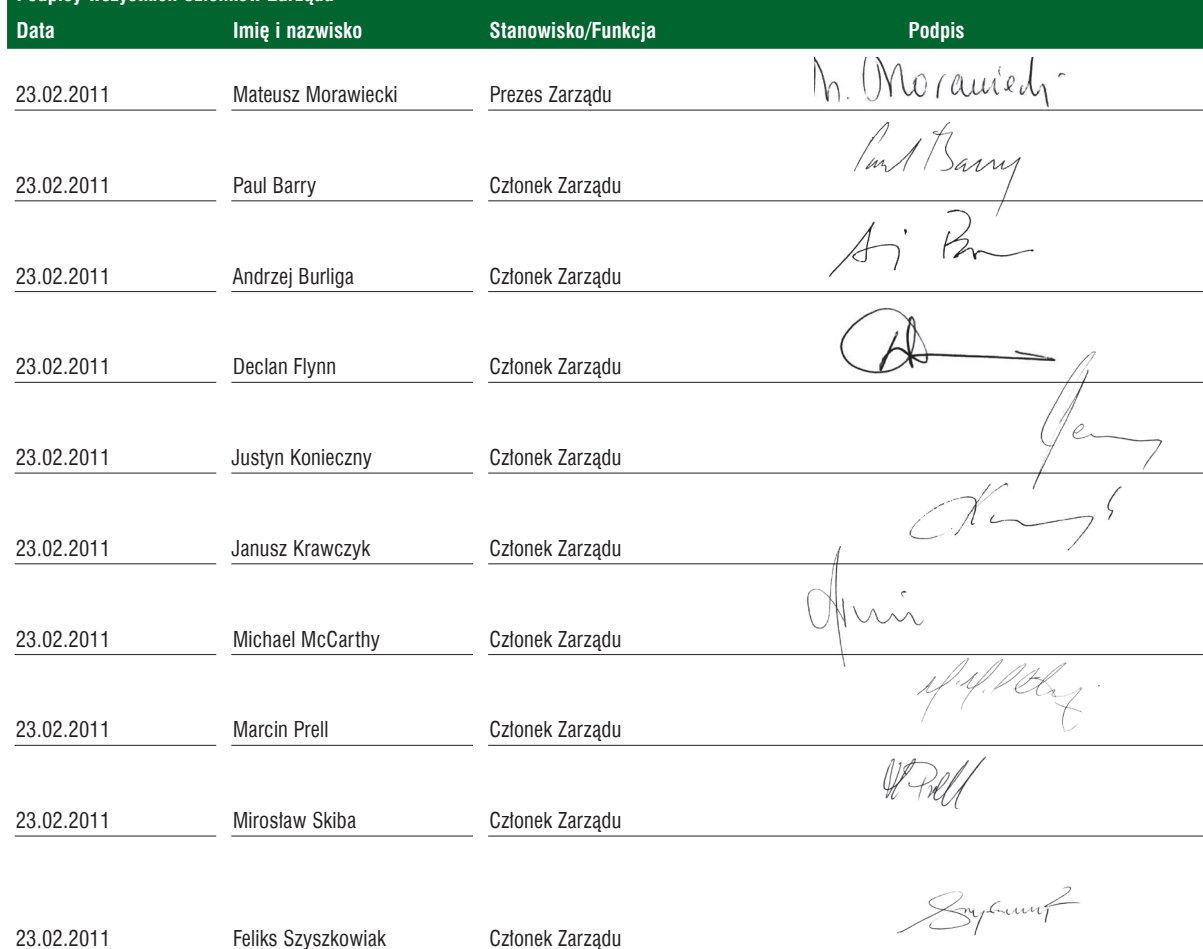 Podpisy wszystkich członków Zarządu
Data Imię i nazwisko Stanowisko/Funkcja Podpis
23.02.2011 Mateusz Morawiecki Prezes Zarządu M. Morawiecki
23.02.2011 Paul Barry Członek Zarządu Paul Barry
23.02.2011 Andrzej Burliga Członek Zarządu
23.02.2011 Declan Flynn Członek Zarządu
23.02.2011 Justyn Konieczny Członek Zarządu
23.02.2011 Janusz Krawczyk Członek Zarządu
23.02.2011 Michael McCarthy Członek Zarządu
23.02.2011 Marcin Prell Członek Zarządu
23.02.2011 Mirosław Skiba Członek Zarządu M Prell
23.02.2011 Feliks Szyszkowiak Członek Zarządu